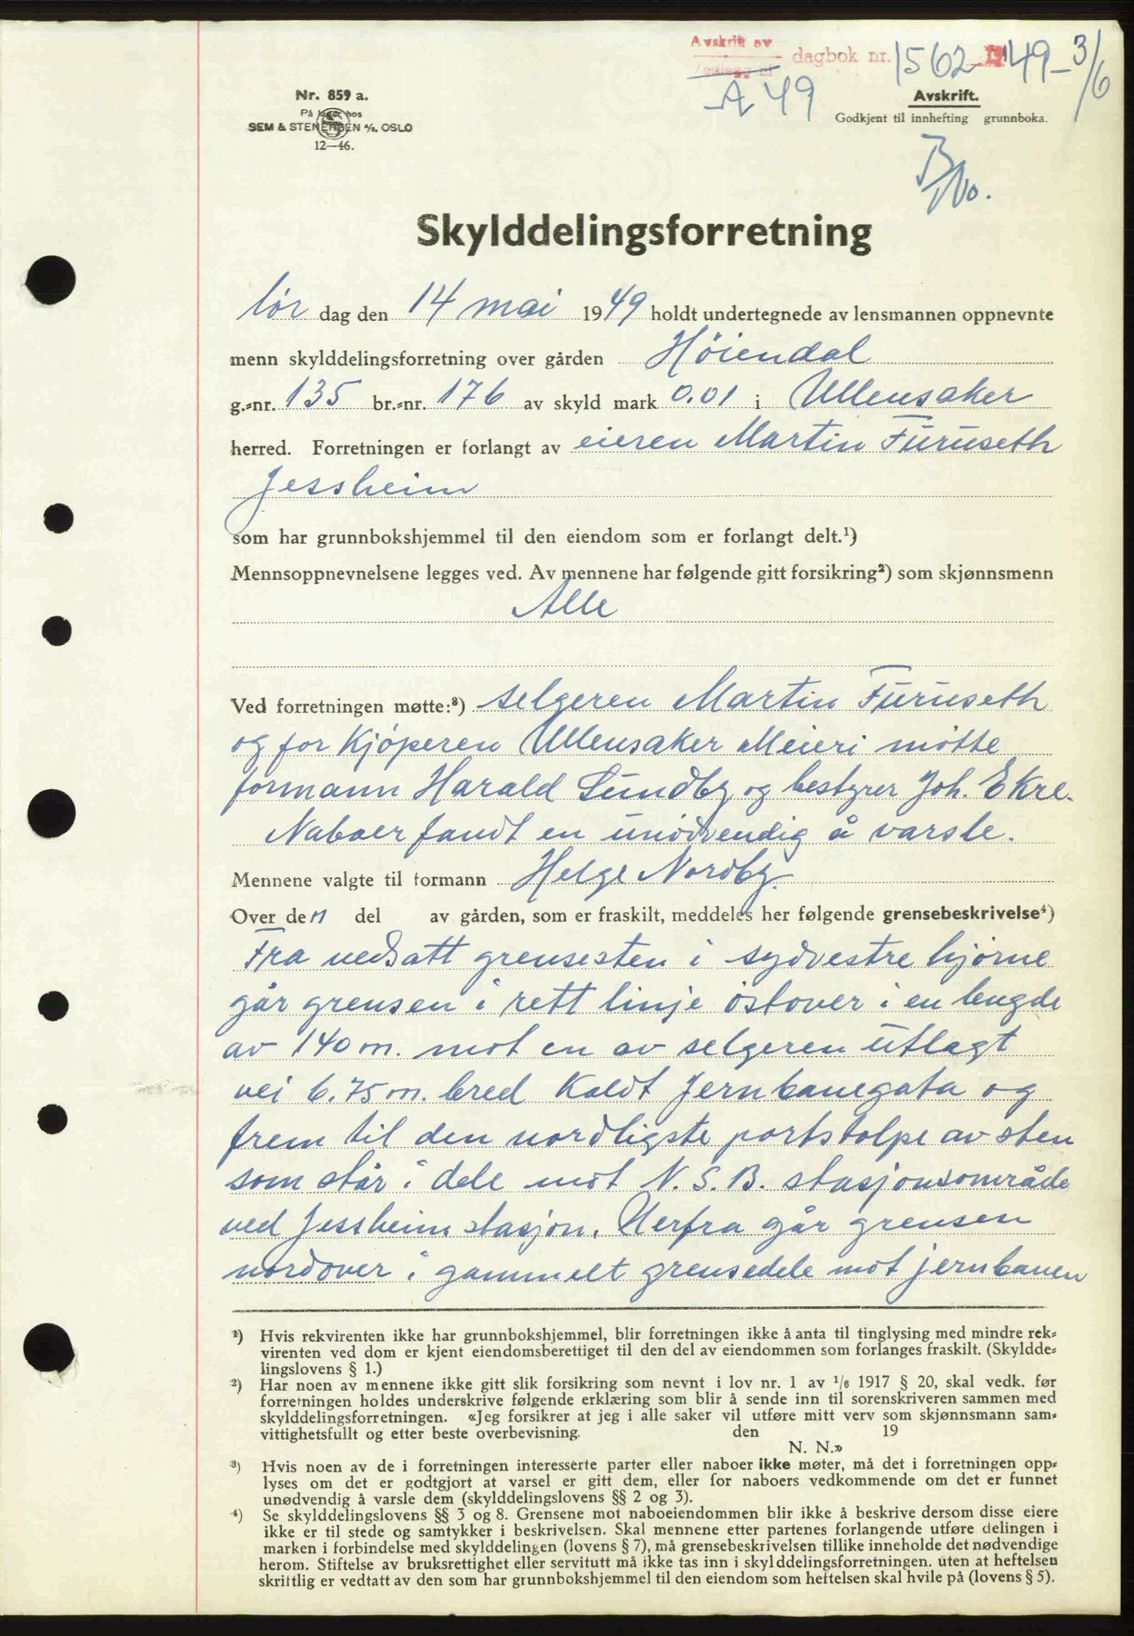 Avskrift av dagbok nr. 1562 - 1949 - 3/6
A 49
Nr. 859 a.
På lager hos
SEM & STENERSEN A/S. OSLO
12—46.
Avskrift.
Godkjent til innhefting grunnboka.
B/No.
Skylddelingsforretning
lør dag den 14 mai 1949 holdt undertegnede av lensmannen oppnevnte
menn skylddelingsforretning over gården Höiendal
g.-nr. 135 br.-nr. 176 av skyld mark 0.01 i Ullensaker
herred. Forretningen er forlangt av eieren Martin Furuseth
Jessheim
som har grunnbokshjemmel til den eiendom som er forlangt delt.¹)
Mennsoppnevnelsene legges ved. Av mennene har følgende gitt forsikring²) som skjønnsmenn
Alle
Ved forretningen møtte:³) selgeren Martin Furuseth
og for Kjöperen Ullensaker Meieri mötte
formann Harald Sundby og bestyrer Joh. Ekre.
Naboer fandt en unödvendig å varsle.
Mennene valgte til formann Helge Nordby.
Over den del av gården, som er fraskilt, meddeles her følgende grensebeskrivelse⁴)
Fra nedsatt grensesten i sydvestre hjörne
går grensen i rett linje östover i en lengde
av 140 m. mot en av selgeren utlagt
vei 6.75 m. bred Kaldt Jernbanegata og
frem til den nordligste portstolpe av sten
som står i dele mot N. S. B. stasjonsområde
ved Jessheim stasjon. Herfra går grensen
nordover i gammelt grensedele mot jernbanen
¹) Hvis rekvirenten ikke har grunnbokshjemmel, blir forretningen ikke å anta til tinglysing med mindre rek-
virenten ved dom er kjent eiendomsberettiget til den del av eiendommen som forlanges fraskilt. (Skyldde-
lingslovens § 1.)
²) Har noen av mennene ikke gitt slik forsikring som nevnt i lov nr. 1 av 1/6 1917 § 20, skal vedk. før
forretningen holdes underskrive følgende erklæring som blir å sende inn til sorenskriveren sammen med
skylddelingsforretningen. «Jeg forsikrer at jeg i alle saker vil utføre mitt verv som skjønnsmann sam-
vittighetsfullt og etter beste overbevisning. den 19
N. N.»
³) Hvis noen av de i forretningen interesserte parter eller naboer ikke møter, må det i forretningen opp-
lyses om det er godtgjort at varsel er gitt dem, eller for naboers vedkommende om det er funnet
unødvendig å varsle dem (skylddelingslovens §§ 2 og 3).
⁴) Se skylddelingslovens §§ 3 og 8. Grensene mot naboeiendommen blir ikke å beskrive dersom disse eiere
ikke er til stede og samtykker i beskrivelsen. Skal mennene etter partenes forlangende utføre delingen i
marken i forbindelse med skylddelingen (lovens § 7), må grensebeskrivelsen tillike inneholde det nødvendige
herom. Stiftelse av bruksrettighet eller servitutt må ikke tas inn i skylddelingsforretningen. uten at heftelsen
skriftlig er vedtatt av den som har grunnbokshjemmel til den eiendom som heftelsen skal hvile på (lovens § 5).